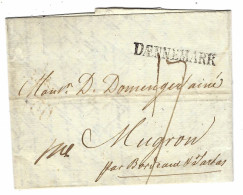 DÆNNEMARK
Monsr. D. Domenger ainé
Mugron
par Bordeaux &